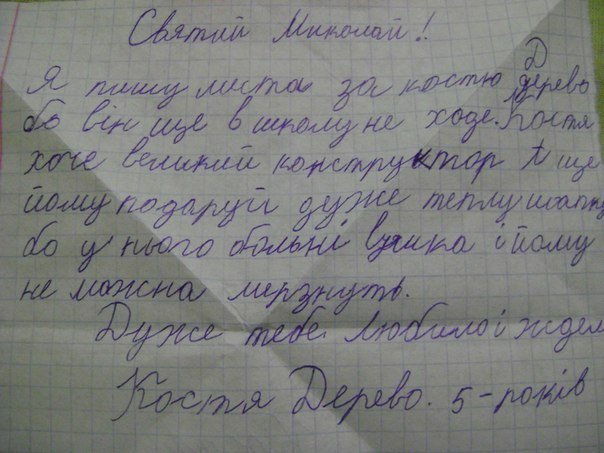 Святий Миколай!
Я пишу листа за костю Дерево
бо він ще в школу не ходе. Костя
хоче великий конструктор А ще
йому подаруй дуже теплу шапку
бо у нього больні вушка і йому
не можна мерзнуть.
Дуже тебе любимо і ждем
Костя Дерево. 5-років